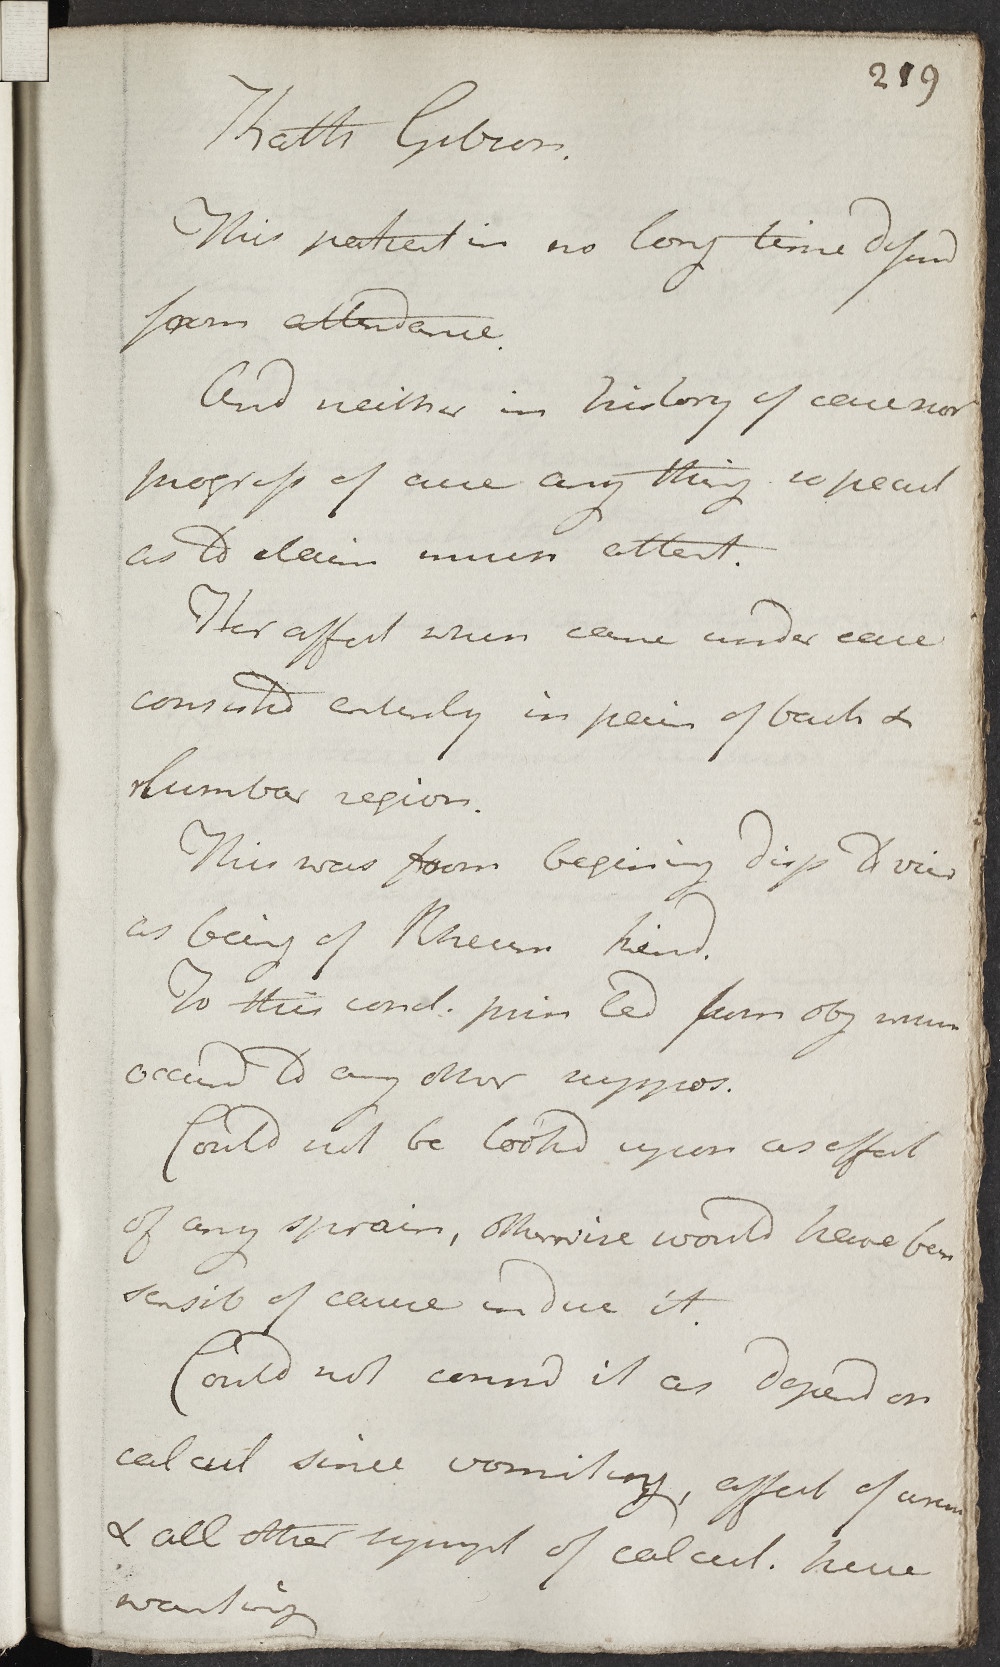 219
Kath Gibson.
This patient in no long time dismd
from attendance.
And neither in history of case nor
progress of cure any thing so pecul
as to claim much attent.
Her affect when came under care
consisted entirely in pain of back &
lumbar region.
This was from begining disp to view
as being of Rheum kind.
To this concl. prin led from obj which
occurd to any other suppos.
Could not be lookd upon as effect
of any sprain, otherwise would have been
sensib of cause induc it.
Could not consid it as depend on
calcul since vomiting, affect of urin
& all other sympt of calcul. here
wanting